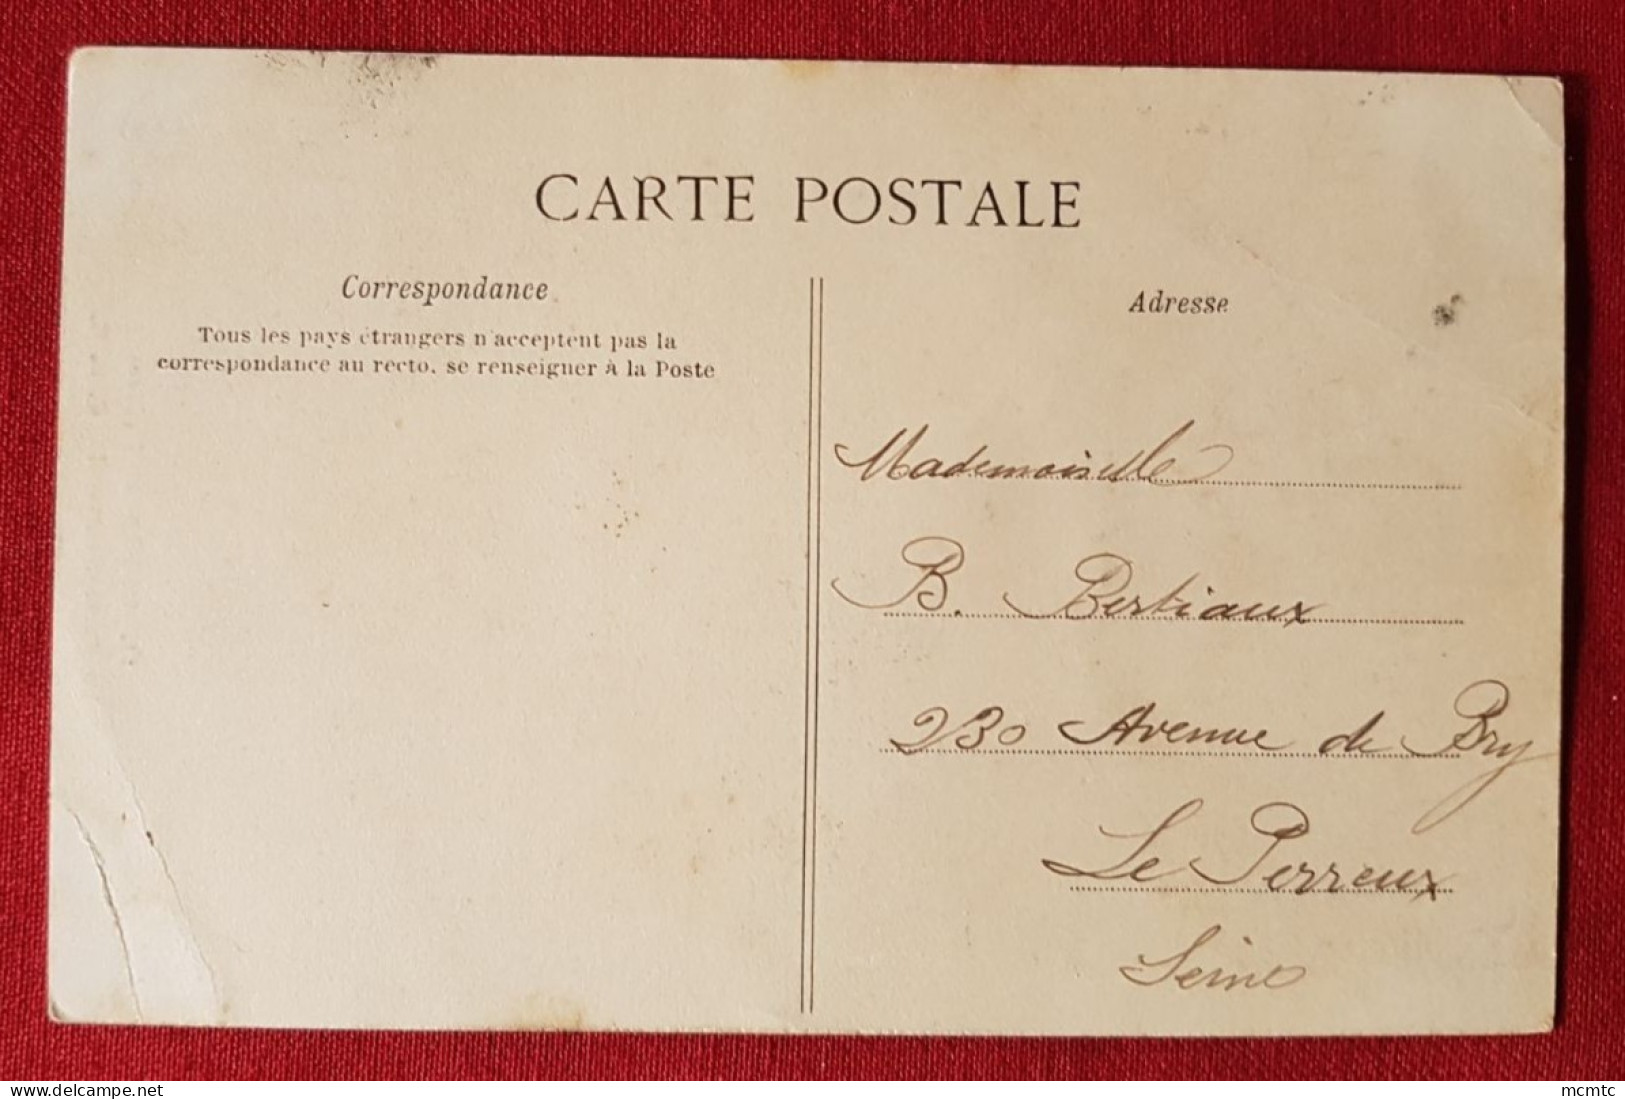 CARTE POSTALE
Correspondance
Tous les pays étrangers n'acceptent pas la
correspondance au recto, se renseigner à la Poste
Adresse
Mademoiselle
B. Bertiaux
230 Avenue de Bry
Le Perreux
Seine
delcampe.net
mcmtc